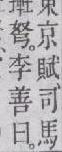 東京賦、司馬
弩。李善曰。